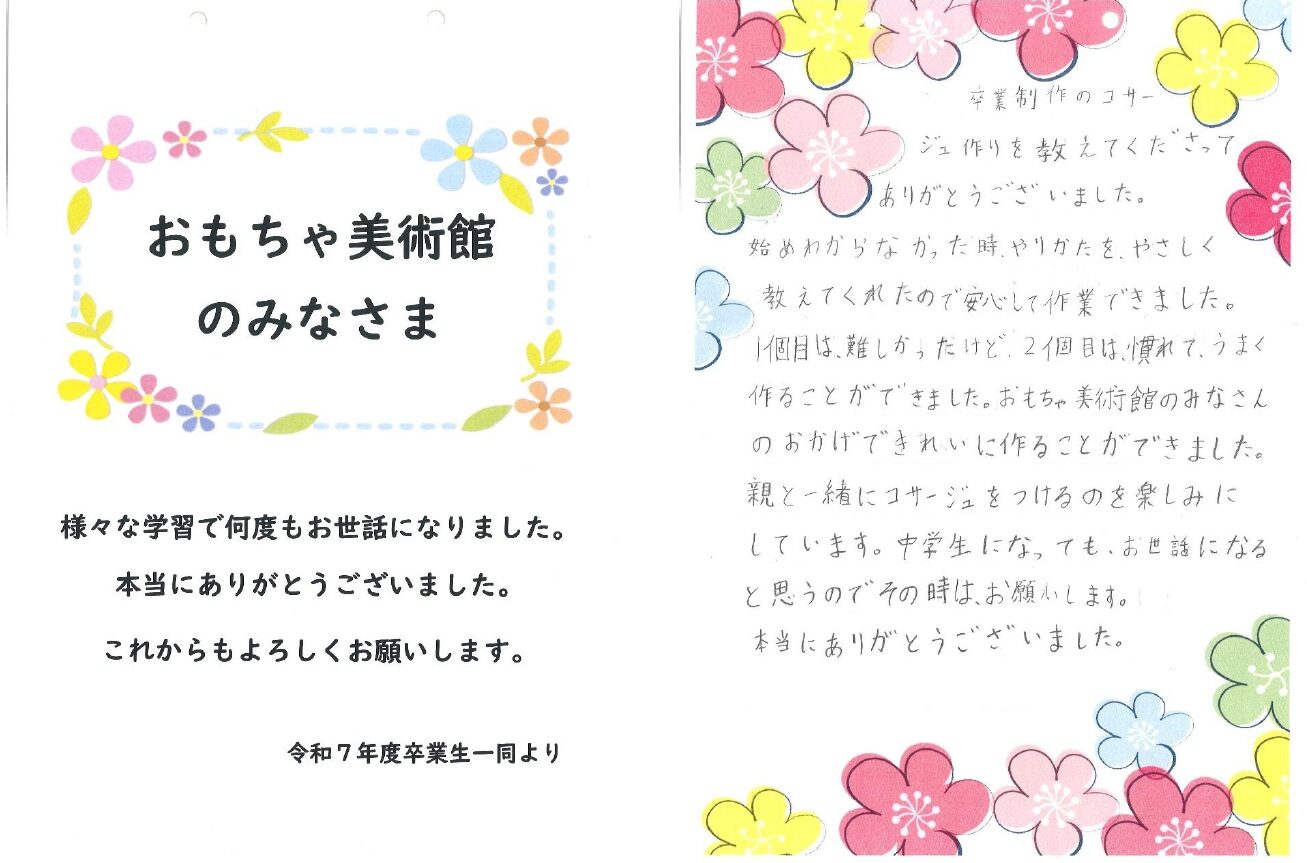 おもちゃ美術館
のみなさま
様々な学習で何度もお世話になりました。
本当にありがとうございました。
これからもよろしくお願いします。
令和７年度卒業生一同より
卒業制作のコサー
ジュ作りを教えてくださって
ありがとうございました。
始めわからなかった時、やりかたを、やさしく
教えてくれたので安心して作業できました。
1個目は、難しかったけど、2個目は、慣れて、うまく
作ることができました。おもちゃ美術館のみなさん
のおかげできれいに作ることができました。
親と一緒にコサージュをつけるのを楽しみに
しています。中学生になっても、お世話になる
と思うのでその時は、お願いします。
本当にありがとうございました。